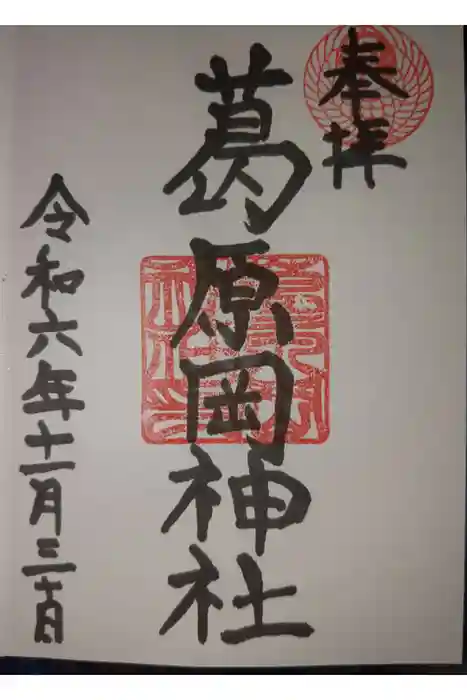 奉拝
葛原岡神社
令和六年十一月三十日